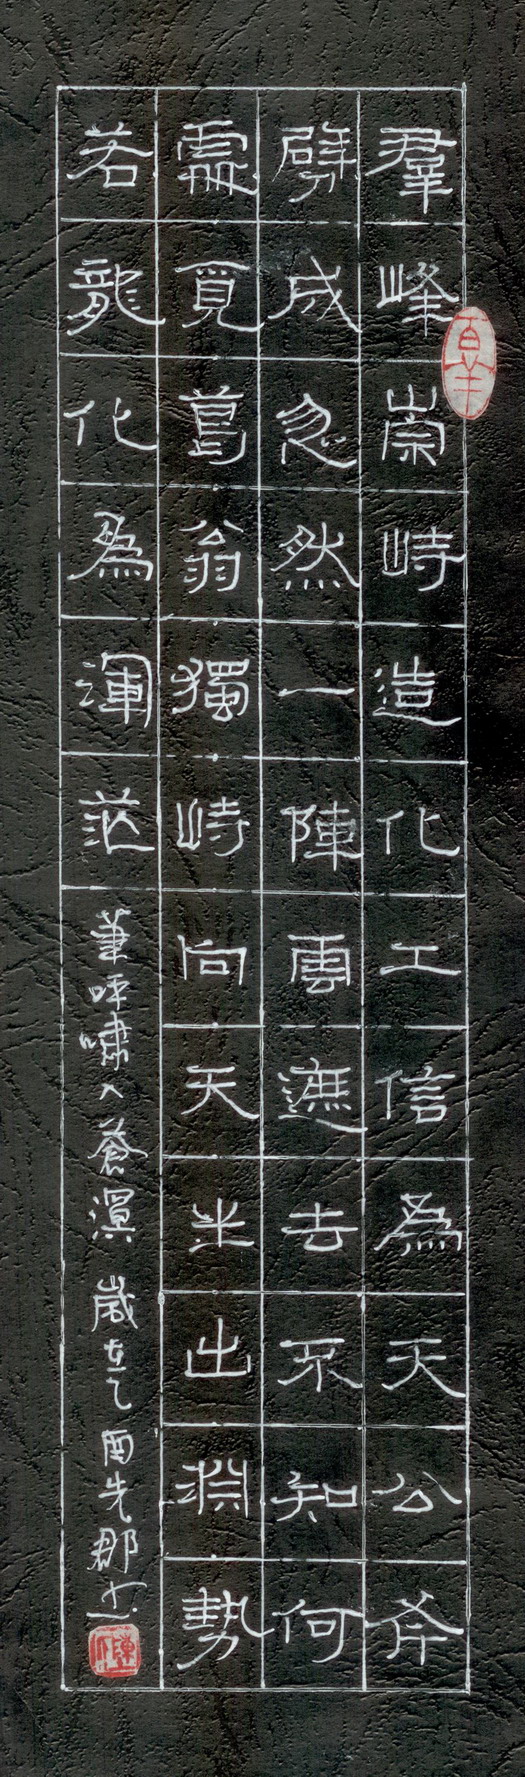 羣峰崇峙造化工信為天公斧
劈成忽然一陣雲遮去不知何
處覓葛翁獨峙向天半出淵勢
若龍化為渾茫
筆呼嘯入蒼溟 歲在乙酉先郡書